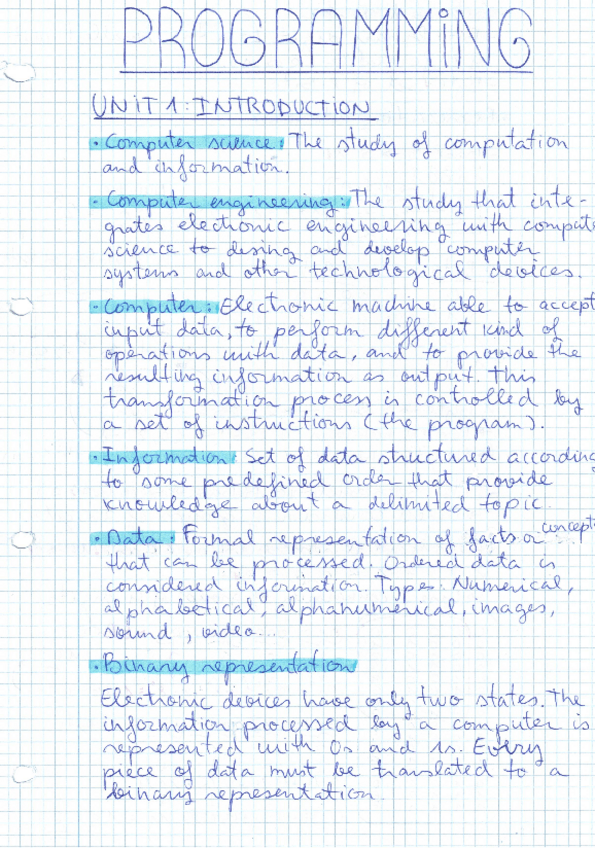 PROGRAMMiNG
UNiT 1: INTRODUCTION
· Computer science: The study of computation
and information.
· Computer engineering: The study that inte-
grates electronic engineering with compute
science to desing and develop computer
systems and other technological devices.
· Computer: Electronic machine able to accept
input data, to perform different kind of
operations with data, and to provide the
resulting information as output. This
transformation process is controlled by
a set of instructions (the program).
· Information: Set of data structured according
to some predefined order that provide
knowledge about a delimited topic.
· Data: Formal representation of facts or concepts
that can be processed. Ordered data is
considered information. Types: Numerical,
alphabetical, alphanumerical, images,
sound, video...
· Binary representation
Electronic devices have only two states. The
information processed by a computer is
represented with 0s and 1s. Every
piece of data must be translated to a
binary representation